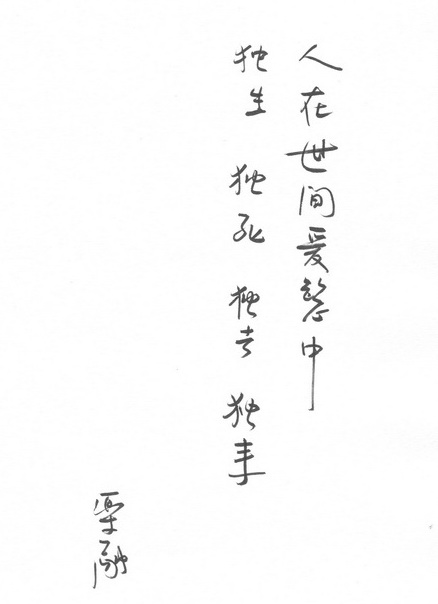 人在世间爱慾中
独生 独死 独去 独来